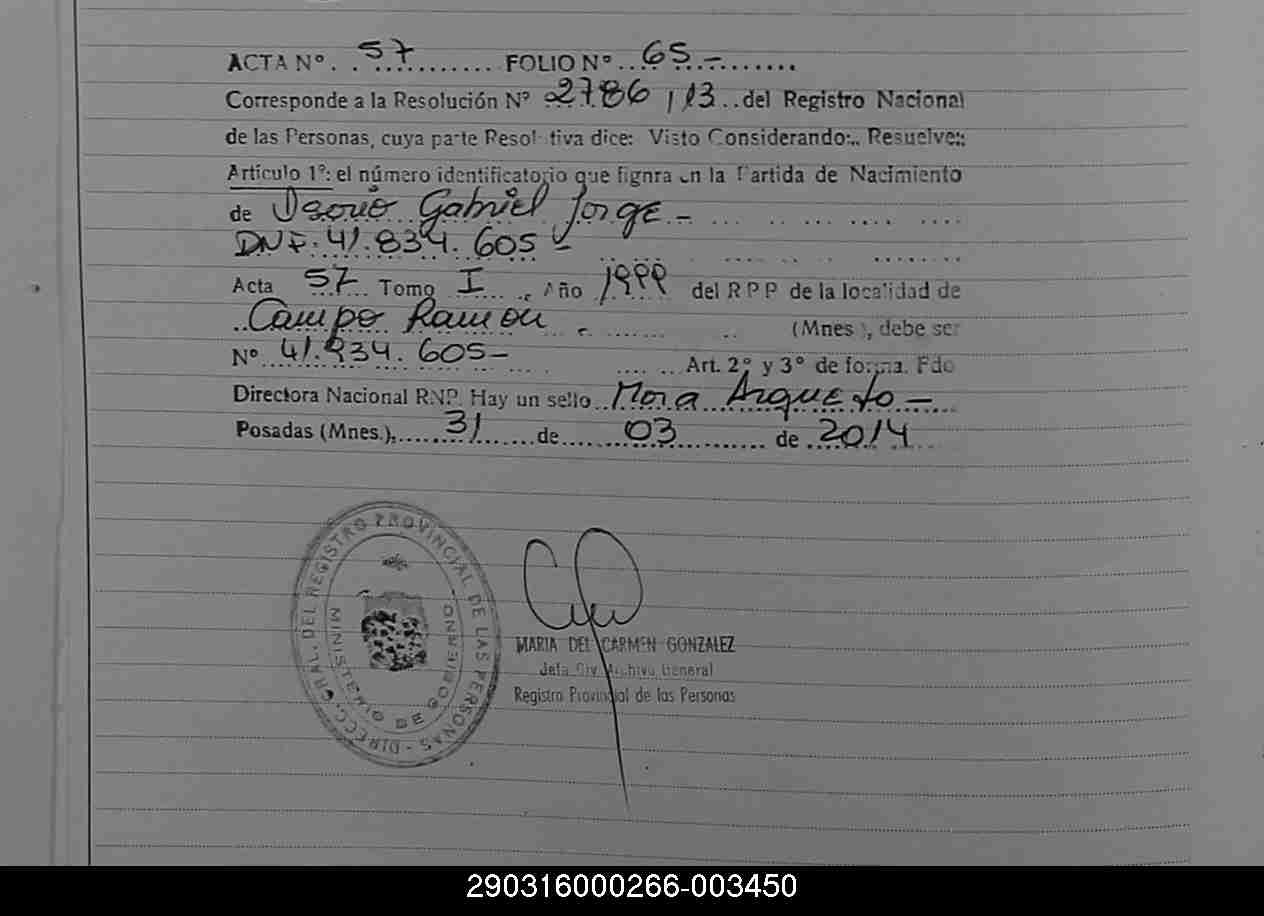 ACTA Nº 57 FOLIO Nº 65.-
Corresponde a la Resolución Nº 2786/13 del Registro Nacional
de las Personas, cuya parte Resolutiva dice: Visto Considerando:.. Resuelve:
Artículo 1º: el número identificatorio que fignra en la Partida de Nacimiento
de Gabriel Jorge -
DNI: 41.834.605 -
Acta 57 Tomo I, Año 1999 del R P P de la localidad de
Campo Ramon (Mnes), debe ser
Nº 41.834.605- Art. 2º y 3º de forma. Fdo
Directora Nacional RNP. Hay un sello Mora Arqueto -
Posadas (Mnes.), 31 de 03 de 2014
DIRECC. GRAL. DEL REGISTRO PROVINCIAL DE LAS PERSONAS -
MINISTERIO DE GOBIERNO
MARIA DEL CARMEN GONZALEZ
Jefa Div. Archivo General
Registro Provincial de las Personas
290316000266-003450